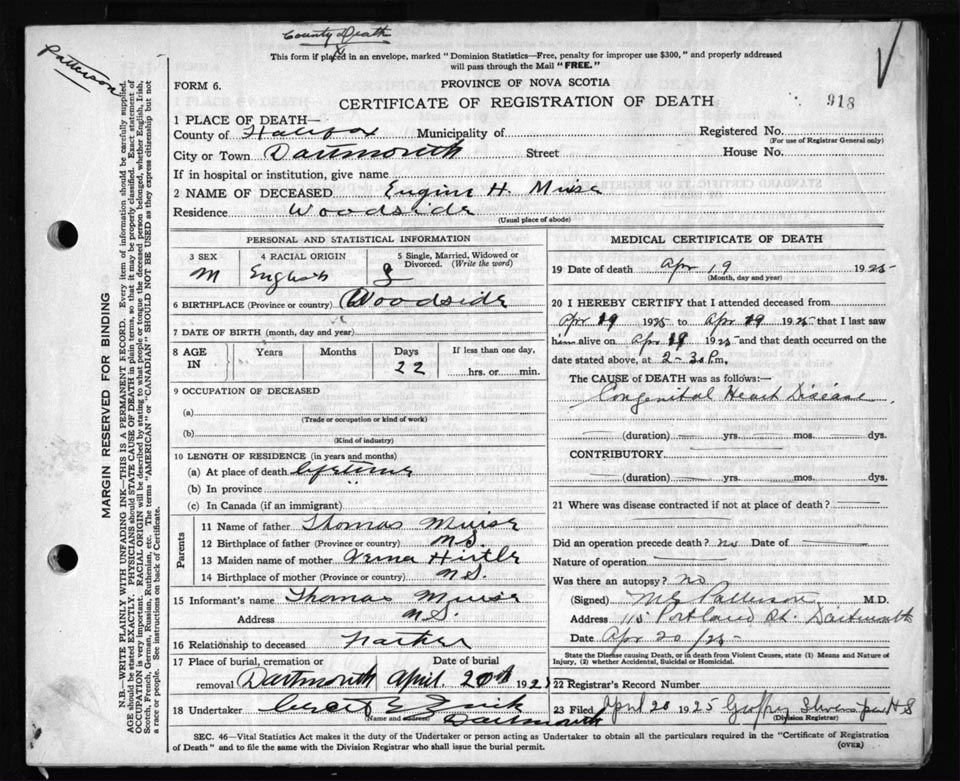 County Death
This form if placed in an envelope, marked "Dominion Statistics—Free, penalty for improper use $300," and properly addressed
will pass through the Mail "FREE."
Patterson
FORM 6.
PROVINCE OF NOVA SCOTIA
CERTIFICATE OF REGISTRATION OF DEATH
918
1 PLACE OF DEATH—
County of Halifax Municipality of Registered No.
(For use of Registrar General only)
City or Town Dartmouth Street House No.
If in hospital or institution, give name
2 NAME OF DECEASED H. Muise
Residence Woodside
(Usual place of abode)
MARGIN RESERVED FOR BINDING
N.B.—WRITE PLAINLY WITH UNFADING INK—THIS IS A PERMANENT RECORD. Every item of information should be carefully supplied.
AGE should be stated EXACTLY. PHYSICIANS should STATE CAUSE OF DEATH in plain terms, so that it may be properly classified. Exact statement of
OCCUPATION is very important. RACIAL ORIGIN will be described by stating to what people or tongue the deceased person belonged, whether English, Irish,
Scotch, French, German, Russian, Ruthenian, etc. The terms "AMERICAN" or "CANADIAN" SHOULD NOT BE USED as they express citizenship but not
a race or people. See instructions on back of Certificate.
PERSONAL AND STATISTICAL INFORMATION
3 SEX 4 RACIAL ORIGIN 5 Single, Married, Widowed or
Divorced. (Write the word)
M English S
6 BIRTHPLACE (Province or country) Woodside
7 DATE OF BIRTH (month, day and year)
8 AGE IN Years Months Days If less than one day,
22 hrs. or min.
9 OCCUPATION OF DECEASED
(a)
(Trade or occupation or kind of work)
(b)
(Kind of industry)
10 LENGTH OF RESIDENCE (in years and months)
(a) At place of death lifetime
(b) In province "
(c) In Canada (if an immigrant)
Parents
11 Name of father Thomas Muise
12 Birthplace of father (Province or country) N.S.
13 Maiden name of mother Verna Hirtle
14 Birthplace of mother (Province or country) N.S.
15 Informant's name Thomas Muise
Address N.S.
16 Relationship to deceased Father
17 Place of burial, cremation or Date of burial
removal Dartmouth April 20th 192
18 Undertaker
(Name and address) Dartmouth
MEDICAL CERTIFICATE OF DEATH
19 Date of death Apr 19 1925
(Month, day and year)
20 I HEREBY CERTIFY that I attended deceased from
Apr 19 1925 to Apr 19 1925 that I last saw
him alive on Apr 19 1925 and that death occurred on the
date stated above, at 2-30 P.m.
The CAUSE OF DEATH was as follows:—
Congenital Heart Disease
(duration) yrs. mos. dys.
CONTRIBUTORY
(duration) yrs. mos. dys.
21 Where was disease contracted if not at place of death?
Did an operation precede death? no Date of
Nature of operation
Was there an autopsy? no
(Signed) Patterson M.D.
Address 115 Portland St. Dartmouth
Date Apr 20/25
State the Disease causing Death, or in death from Violent Causes, state (1) Means and Nature of
Injury, (2) whether Accidental, Suicidal or Homicidal.
22 Registrar's Record Number
23 Filed April 20 1925
(Division Registrar)
SEC. 46—Vital Statistics Act makes it the duty of the Undertaker or person acting as Undertaker to obtain all the particulars required in the "Certificate of Registration
of Death" and to file the same with the Division Registrar who shall issue the burial permit.
(OVER)